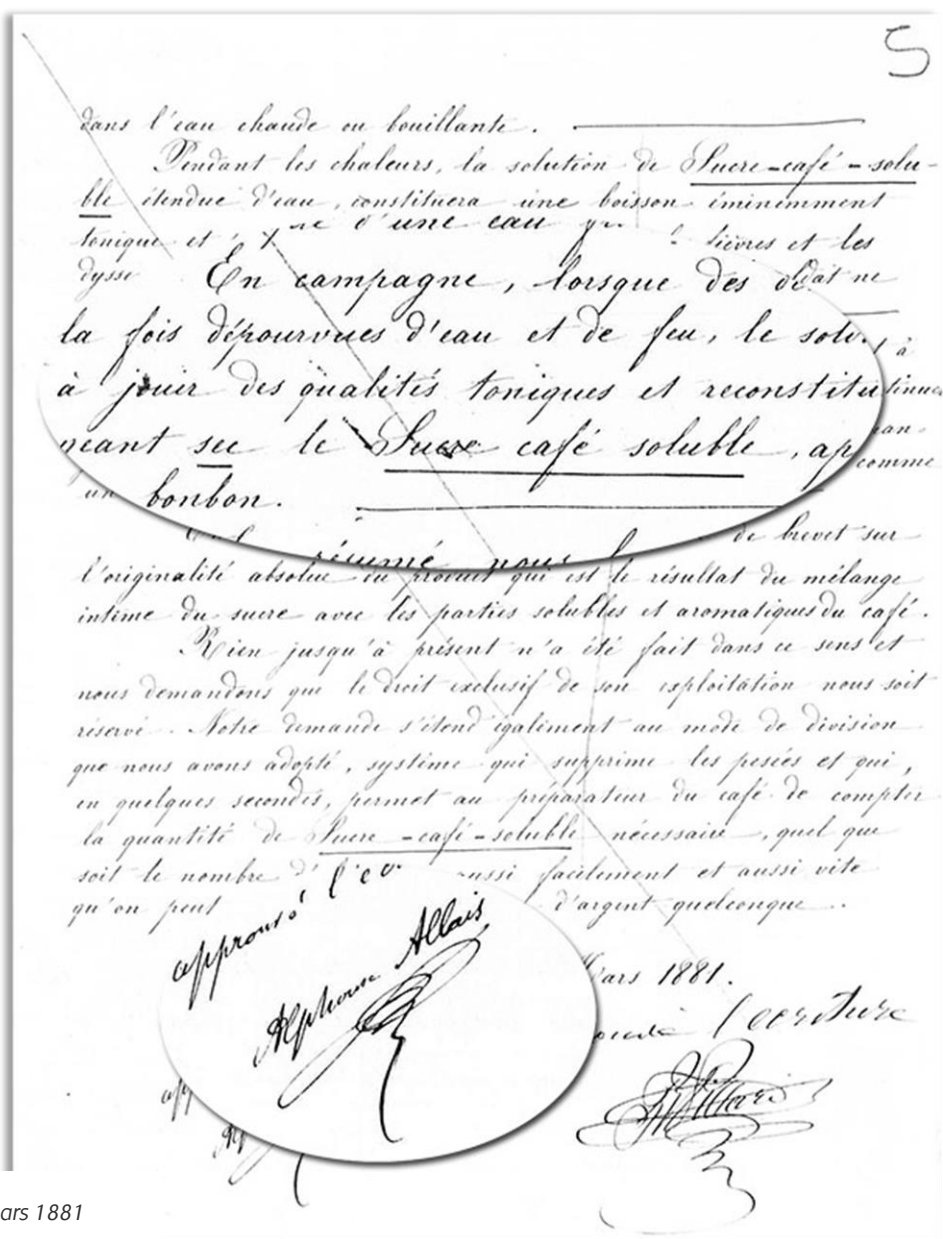 5
dans l'eau chaude ou bouillante.
Pendant les chaleurs, la solution de Sucre-café-solu-
ble étendue d'eau, constituera une boisson éminemment
tonique et d'une eau fièvres et les
dysse
En campagne, lorsque des dat ne
la fois dépourvues d'eau et de feu, le sol à
à jouir des qualités toniques et reconstitu
geant sec le Sucre café soluble, comme
un bonbon.
résumé nous de brevet sur
l'originalité absolue du produit qui est le résultat du mélange
intime du sucre avec les parties solubles et aromatiques du café.
Rien jusqu'à présent n'a été fait dans ce sens et
nous demandons que le droit exclusif de son exploitation nous soit
réservé. Notre demande s'étend également au mode de division
que nous avons adopté, système qui supprime les pesées et qui,
en quelques secondes, permet au préparateur du café de compter
la quantité de Sucre-café-soluble nécessaire, quel que
soit le nombre d' aussi facilement et aussi vite
qu'on peut d'argent quelconque.
approuvé l'éc
Alphonse Allais
ars 1881.
l'écriture
ars 1881